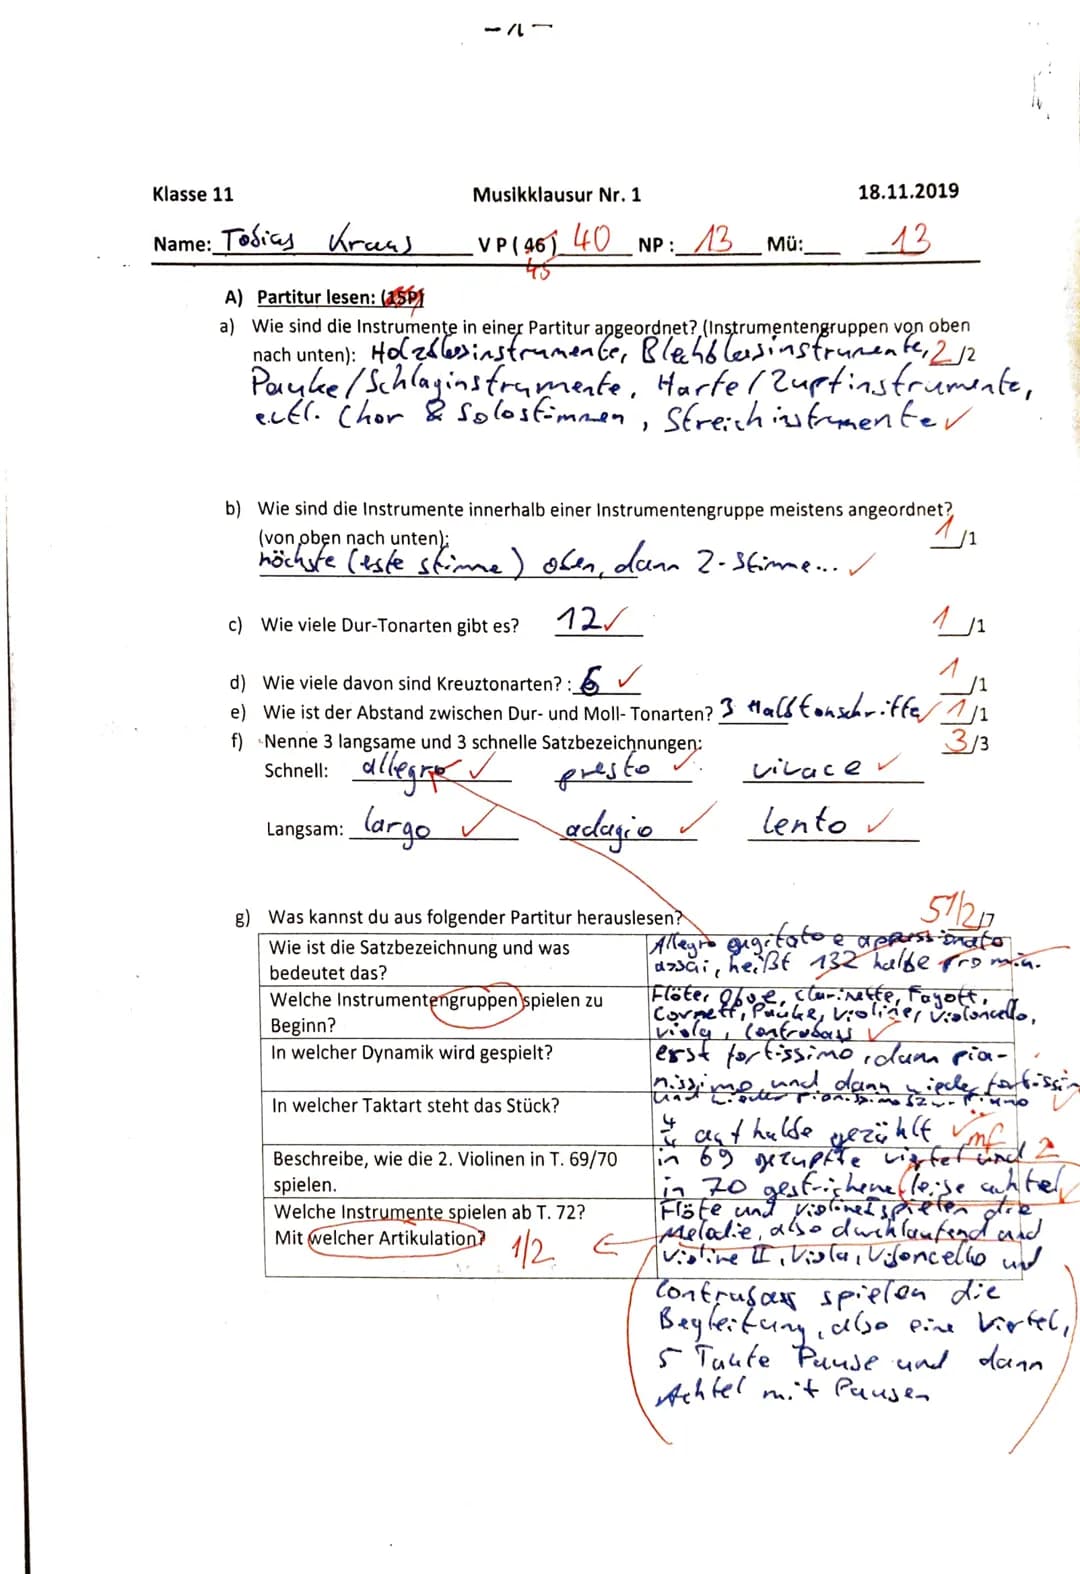 -1-
Klasse 11 Musikklausur Nr. 1 18.11.2019
Name: Tobias Kraus VP(46) 40 NP: 13 Mü: 13
45
A) Partitur lesen: (15P)
a) Wie sind die Instrumente in einer Partitur angeordnet? (Instrumentengruppen von oben
nach unten): Holzblasinstrumente, Blehblasinstrumente, 2/2
Pauke/Schlaginstrumente, Harfe/Zupfinstrumente,
Chor & Solostimmen, Streichinstrumente ✓
b) Wie sind die Instrumente innerhalb einer Instrumentengruppe meistens angeordnet?
(von oben nach unten): 1/1
höchste (este stimme) oben, dann 2-Stimme... ✓
c) Wie viele Dur-Tonarten gibt es? 12 ✓ 1/1
d) Wie viele davon sind Kreuztonarten? : 6 ✓ 1/1
e) Wie ist der Abstand zwischen Dur- und Moll- Tonarten? 3 Halbtonschritte ✓ 1/1
f) Nenne 3 langsame und 3 schnelle Satzbezeichnungen: 3/3
Schnell: allegro ✓ presto ✓ vivace ✓
Langsam: largo ✓ adagio ✓ lento ✓
g) Was kannst du aus folgender Partitur herauslesen? 5 1/2 /7
Wie ist die Satzbezeichnung und was Allegro agitato e appassionato
bedeutet das? assai, heißt 132 halbe pro min.
Welche Instrumentengruppen spielen zu Flöte, Oboe, Clarinette, Fagott,
Beginn? Cornett, Pauke, Violine, Violoncello,
Viola, Contrabass ✓
In welcher Dynamik wird gespielt? erst fortissimo, dann pia-
nissimo und dann wieder fortissim
und wieder pianissimo
In welcher Taktart steht das Stück?
auf halbe gezählt ✓ mf
Beschreibe, wie die 2. Violinen in T. 69/70 in 69 gezupfte viertel und 2
spielen. in 70 gestrichene leise achtel ✓
Welche Instrumente spielen ab T. 72? Flöte und Violine I spielen die
Mit welcher Artikulation? 1/2 Melodie, also durchlaufend und
Violine II, Viola, Viloncello und
Contrabass spielen die
Begleitung, also eine Viertel,
5 Takte Pause und dann
Achtel mit Pausen